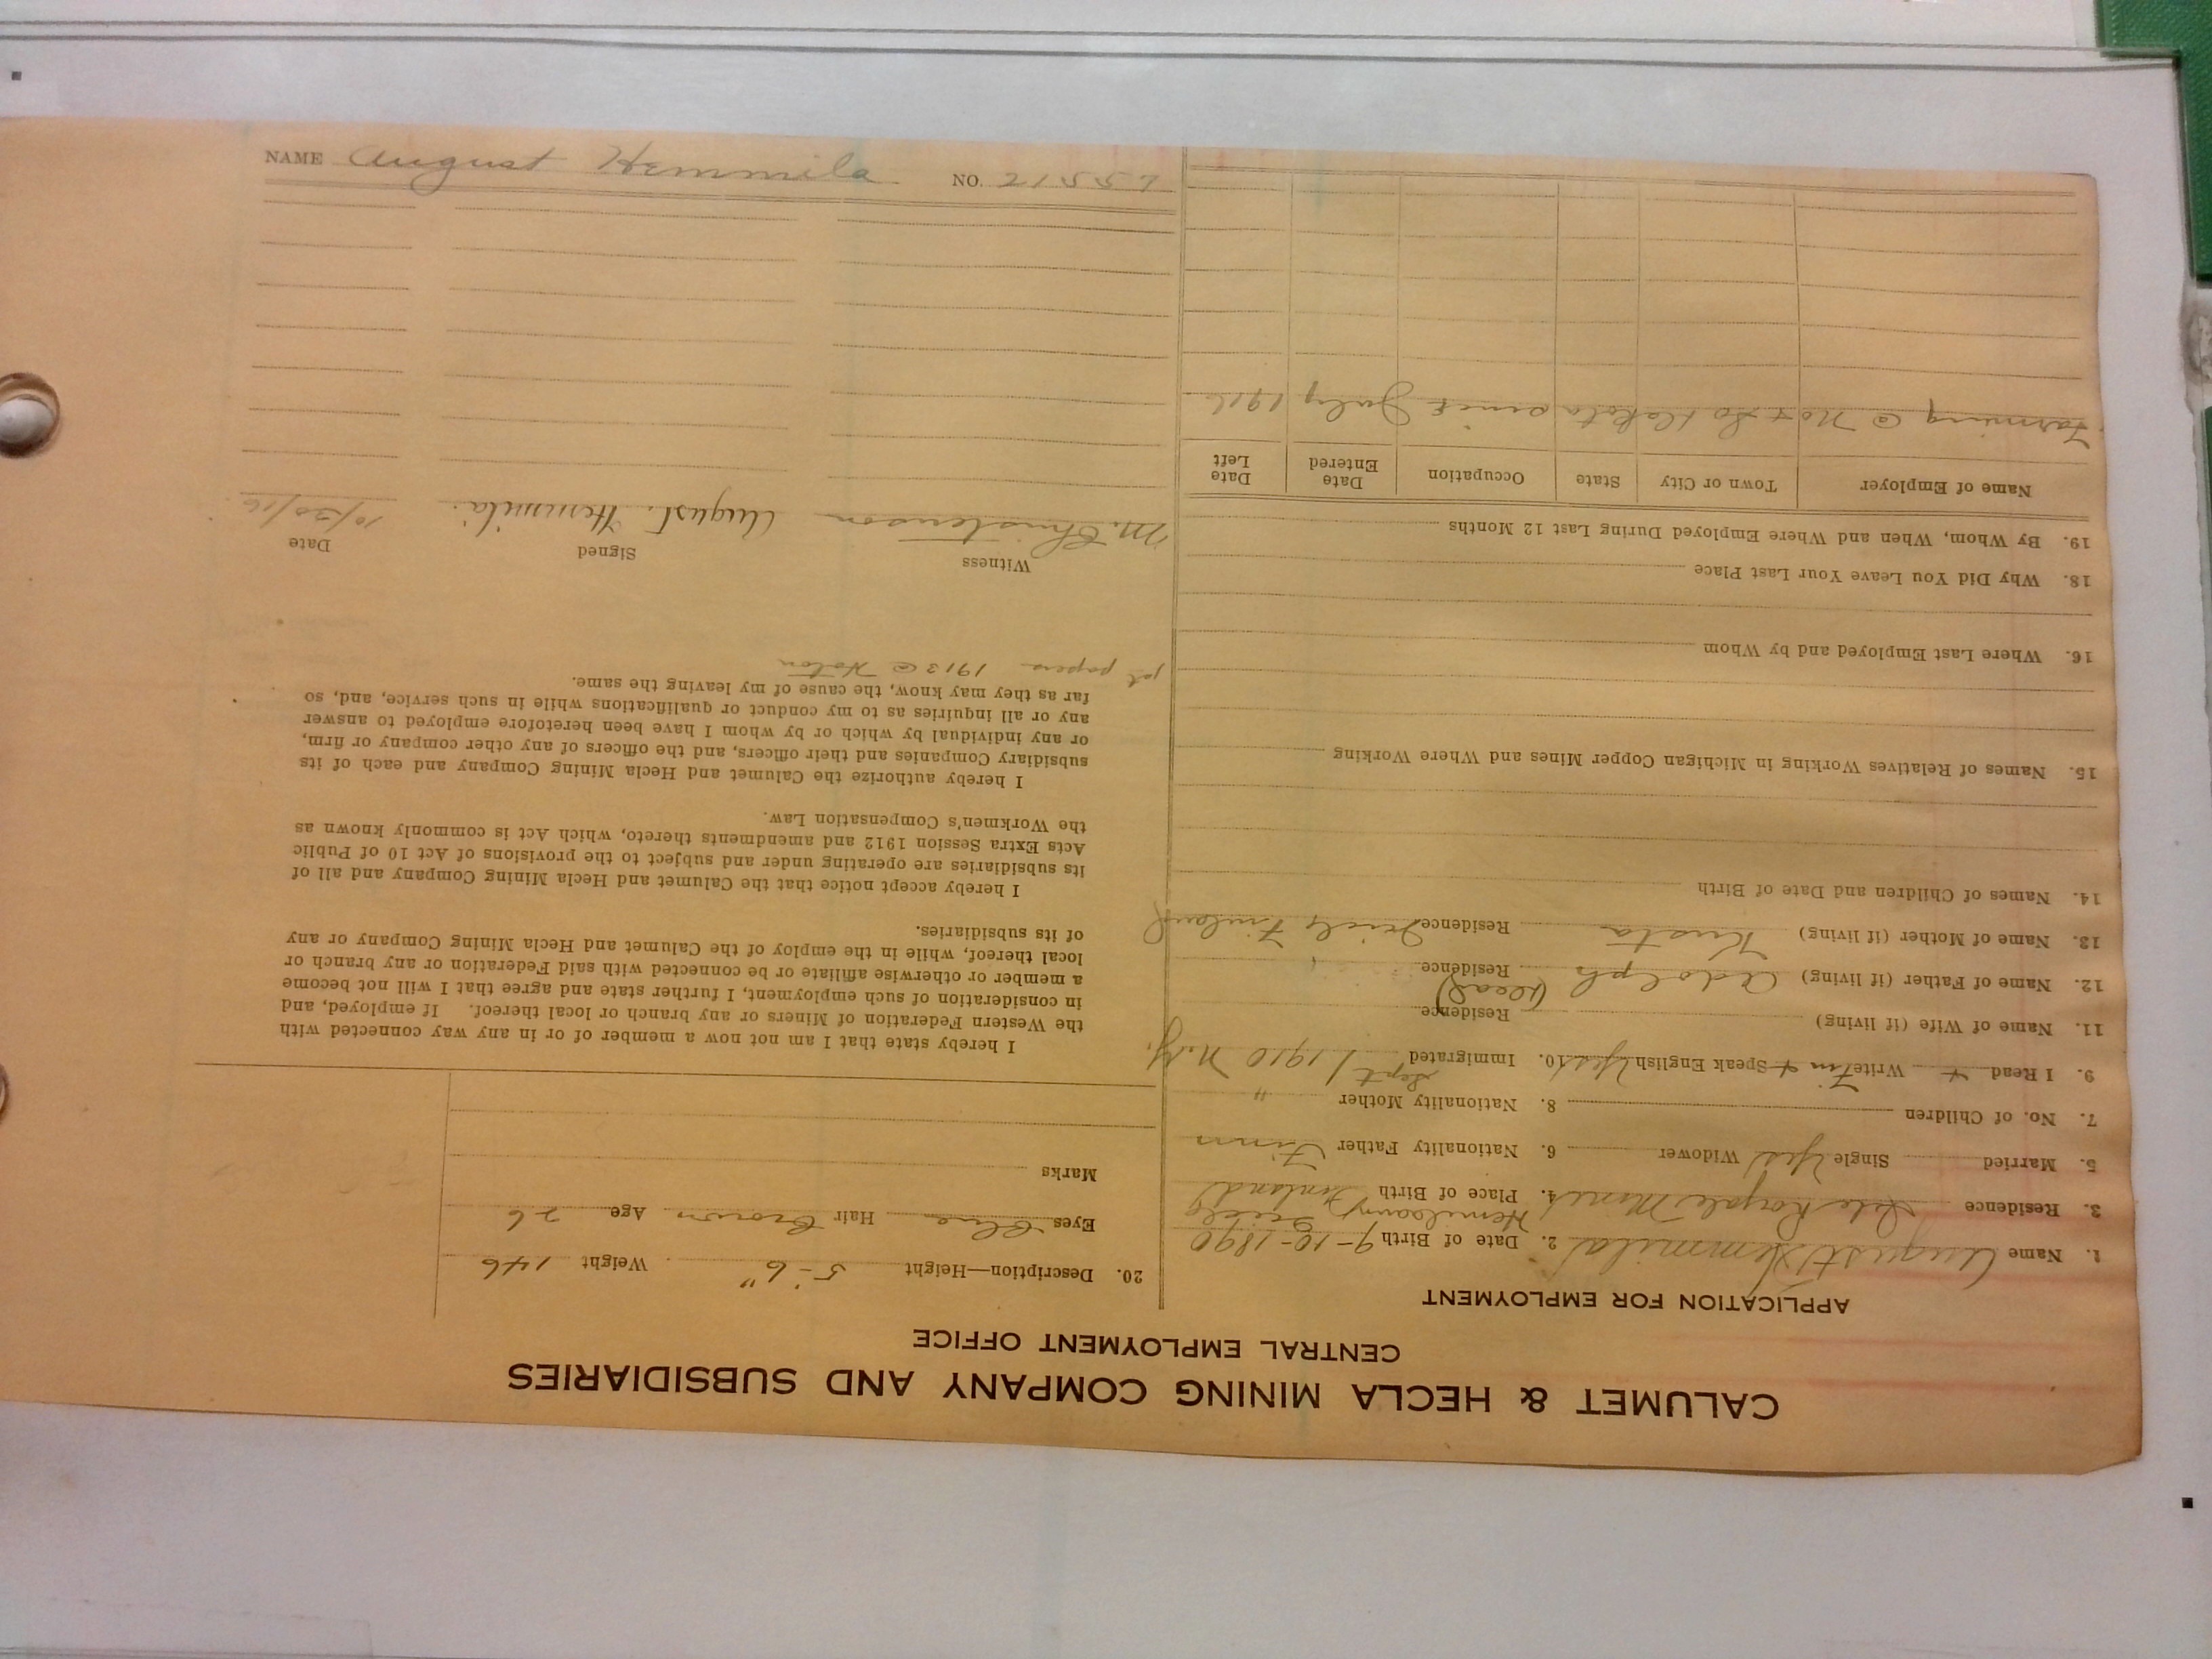 CALUMET & HECLA MINING COMPANY AND SUBSIDIARIES
CENTRAL EMPLOYMENT OFFICE
APPLICATION FOR EMPLOYMENT
1. Name August Hemmila 2. Date of Birth 9-10-1890
3. Residence Isle Royale Mine 4. Place of Birth Finland
5. Married Single Yes Widower 6. Nationality Father Finn
7. No. of Children 8. Nationality Mother "
9. I Read + Write Finn + Speak English Yes 10. Immigrated Sept / 1910 N.Y.
11. Name of Wife (if living) Residence
12. Name of Father (if living) Adolph (Dead) Residence
13. Name of Mother (if living) Residence Finland
14. Names of Children and Date of Birth
15. Names of Relatives Working in Michigan Copper Mines and Where Working
16. Where Last Employed and by Whom
18. Why Did You Leave Your Last Place
19. By Whom, When and Where Employed During Last 12 Months
Name of Employer Town or City State Occupation Date Entered Date Left
Farming @ No + So Dakota since July 1916
20. Description—Height 5-6" Weight 146
Eyes Blue Hair Brown Age 26
Marks
I hereby state that I am not now a member of or in any way connected with
the Western Federation of Miners or any branch or local thereof. If employed, and
in consideration of such employment, I further state and agree that I will not become
a member or otherwise affiliate or be connected with said Federation or any branch or
local thereof, while in the employ of the Calumet and Hecla Mining Company or any
of its subsidiaries.
I hereby accept notice that the Calumet and Hecla Mining Company and all of
its subsidiaries are operating under and subject to the provisions of Act 10 of Public
Acts Extra Session 1912 and amendments thereto, which Act is commonly known as
the Workmen's Compensation Law.
I hereby authorize the Calumet and Hecla Mining Company and each of its
subsidiary Companies and their officers, and the officers of any other company or firm,
or any individual by which or by whom I have been heretofore employed to answer
any or all inquiries as to my conduct or qualifications while in such service, and, so
far as they may know, the cause of my leaving the same.
1st papers 1913 @ Hoton
Witness Signed Date
M. Christenson August. Hemmila. 10/30/16
NAME August Hemmila NO. 21557